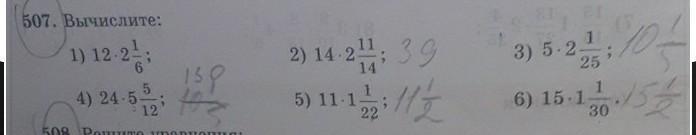 507. Вычислите:
1) 12·2 1/6; 2) 14·2 11/14; 39 3) 5·2 1/25; 10 1/5
4) 24·5 5/12; 5) 11·1 1/22; 11 1/2 6) 15·1 1/30. 15 1/2
508. Решите уравнения: